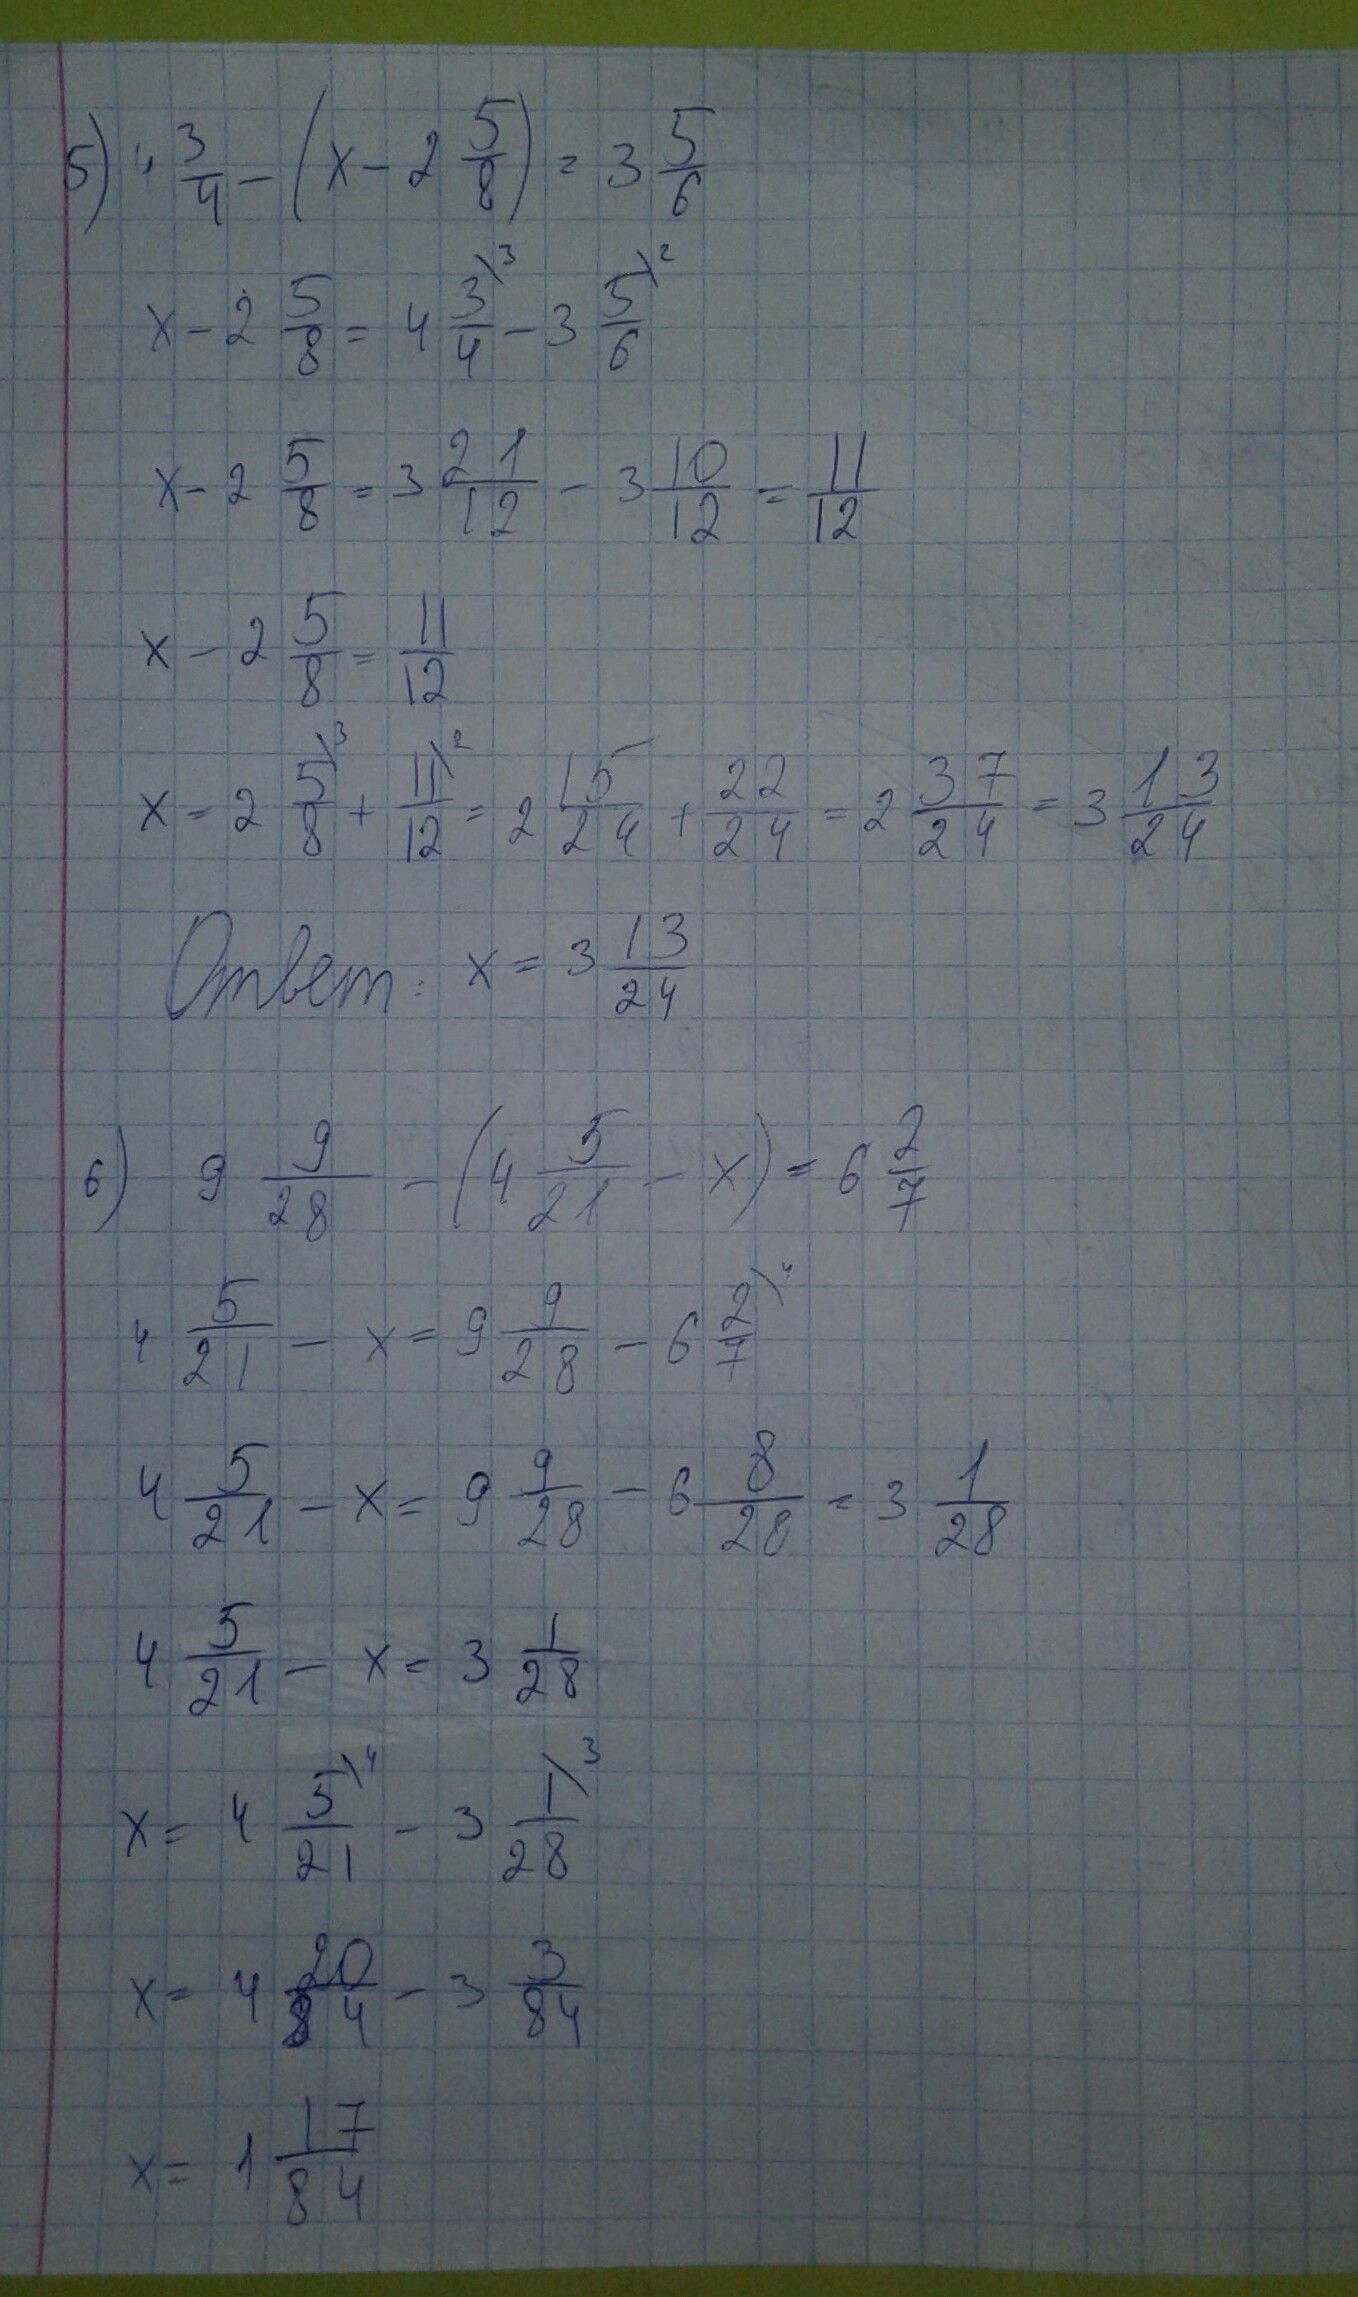 5) 4 3/4 - (x - 2 5/8) = 3 5/6
x - 2 5/8 = 4 3/4\3 - 3 5/6\2
x - 2 5/8 = 3 21/12 - 3 10/12 = 11/12
x - 2 5/8 = 11/12
x = 2 5/8\3 + 11/12\2 = 2 15/24 + 22/24 = 2 37/24 = 3 13/24
Ответ: x = 3 13/24
6) 9 9/28 - (4 5/21 - x) = 6 2/7
4 5/21 - x = 9 9/28 - 6 2/7\4
4 5/21 - x = 9 9/28 - 6 8/28 = 3 1/28
4 5/21 - x = 3 1/28
x = 4 5/21\4 - 3 1/28\3
x = 4 20/84 - 3 3/84
x = 1 17/84